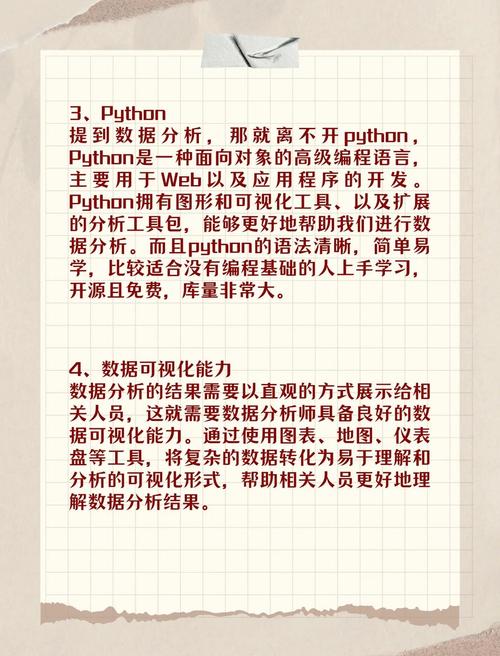 3、Python
提到数据分析，那就离不开python，
Python是一种面向对象的高级编程语言，
主要用于Web以及应用程序的开发。
Python拥有图形和可视化工具、以及扩展
的分析工具包，能够更好地帮助我们进行数
据分析。而且python的语法清晰，简单易
学，比较适合没有编程基础的人上手学习，
开源且免费，库量非常大。
4、数据可视化能力
数据分析的结果需要以直观的方式展示给相
关人员，这就需要数据分析师具备良好的数
据可视化能力。通过使用图表、地图、仪表
盘等工具，将复杂的数据转化为易于理解和
分析的可视化形式，帮助相关人员更好地理
解数据分析结果。